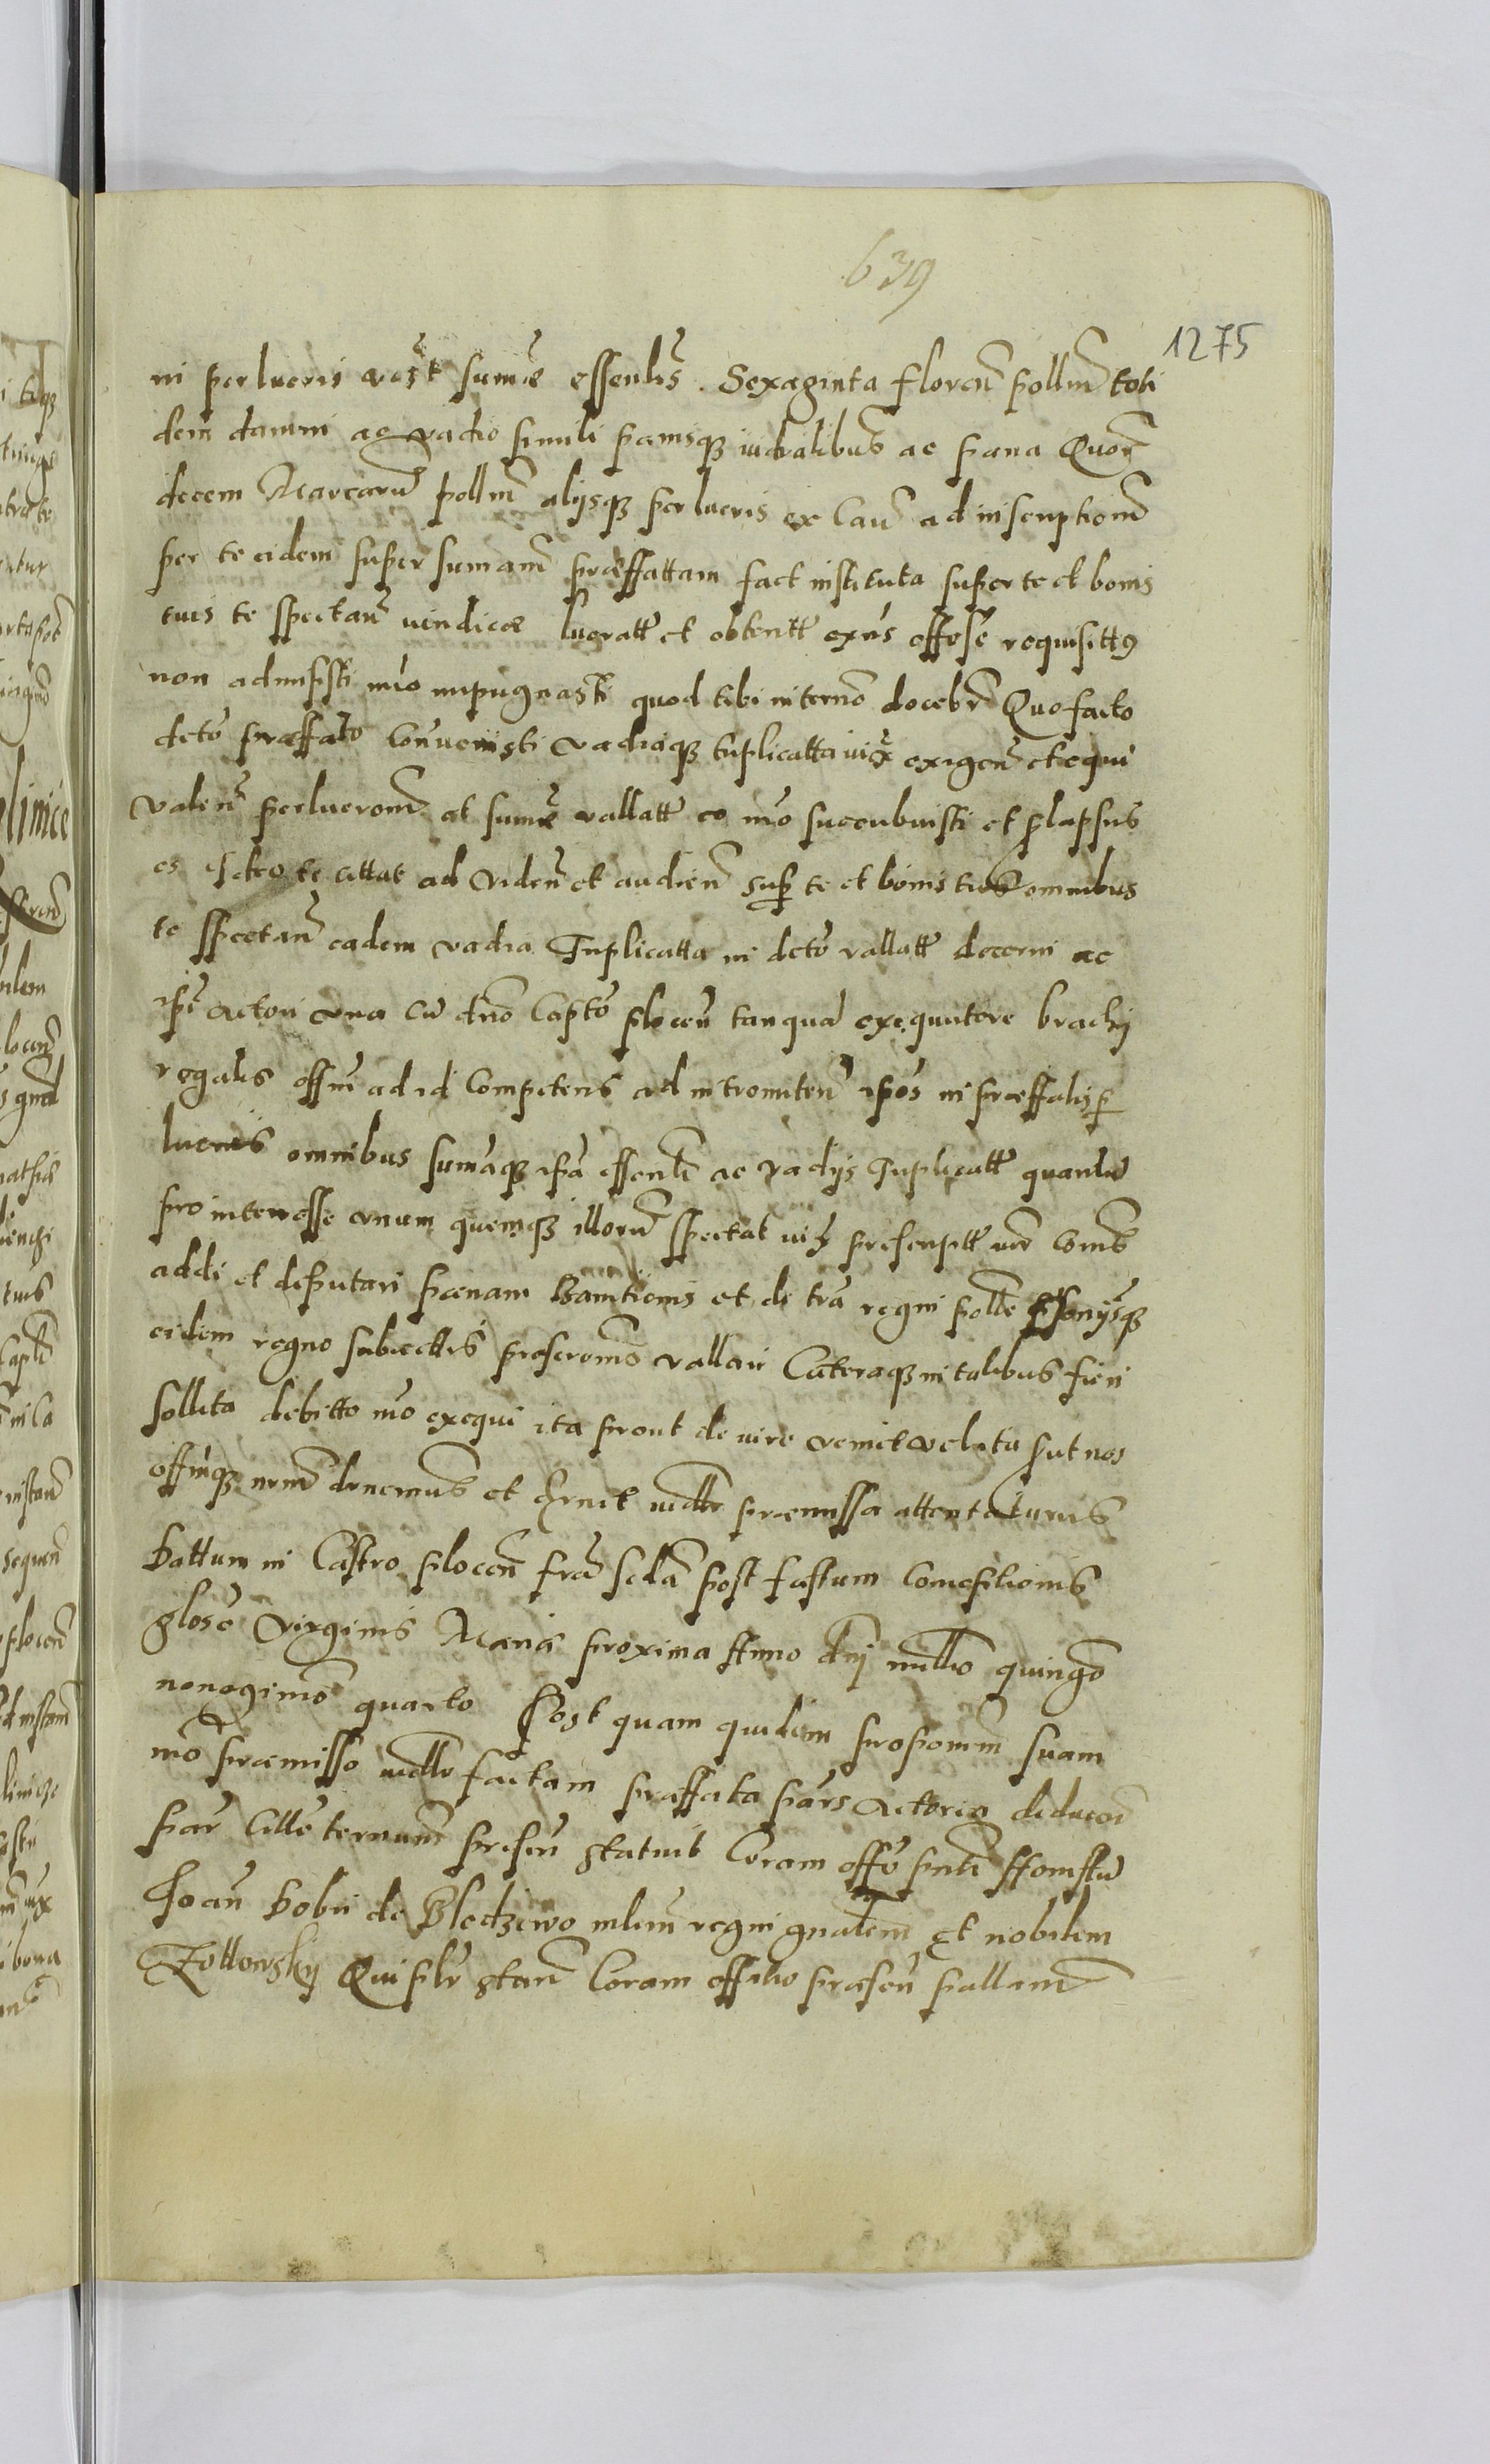 639
1275
in perlucris vest sumæ essenlis. Sexaginta floren pollm toti
dem damni ac vadio simili pænisq iudialibus ac pæna Quor
decem Marcaru pollm alysq perlucris ex caus ad inscriptiom
per te eidem super sumam præffattam fact instituta super te et bonis
tuis te spectan iuridice lucratt et obtentt exns offose requisittg
non admisisti imo impugnasti quod tibi in termo docebr Quo facto
deto præffato Convenisti vadiaq triplicatta exigen et equi
valen perlucrom et sumæ vallatt eo mo succubuisti et plapsus
es Ideo te cittat ad viden et audien sup te et bonis tuis omnibus
te spectan eadem vadia Triplicatta in deto vallatt decerni ac
ipi actori una cu dno Capto plocen tanqua exequutore brachy
regalis offm ad id Competens ad intromiten ipos in præffatis p
lucris omnibus sumaq ipa essenli ac vadys Triplicatt quantu
pro interesse unum quemq illoru spectat
addi et deputari pænam Bannitionis et de tra regni polle
eidem regno subiectis proscromo vallari Cæteraq in talibus fieri
sollita debitto mo exequi ita prout de iure venit
offmq nrm dnemus et præmissa attentaturus
Dattum in Castro plocen fra scda post festum Conceptionis
glose Virginis Mariæ proxima Anno dnj millo quingo
nonogimo quarto Post quam quidem proponm suam
mo præmisso factam præffata pars Actorea diducen
par Citte termum presen statuit Coram offo pnti
Joan Bobii de Bledzewo mlem regni gnalem Et nobilem
Zottowsky Qui plr stan Coram offitio præsen pallam